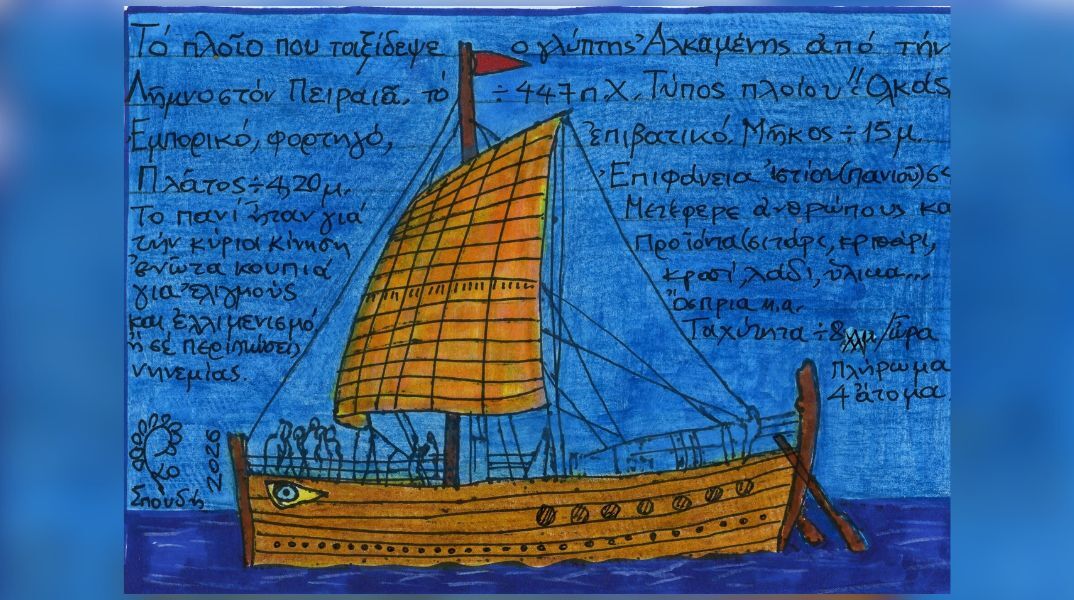 Τό πλοῖο που ταξίδεψε ὁ γλύπτης Ἀλκαμένης ἀπό τήν
Λῆμνο στόν Πειραιᾶ, τό ÷ 447 π.Χ. Τύπος πλοίου "Ὁλκάς
Ἐμπορικό, φορτηγό, ἐπιβατικό. Μῆκος ÷ 15 μ.
Πλάτος ÷ 4,20 μ. Ἐπιφάνεια ἱστίου (πανιοῦ)
Το πανί ἦταν γιά
τήν κύρια κίνηση
ἐνῶ τα κουπιά
για ἑλιγμούς
και ἐλλιμενισμό,
ἤ σέ περίπτωση
νηνεμίας.
Μετέφερε ἀνθρώπους κα
προϊόντα (σιτάρι, κριθάρι,
κρασί, λάδι, ὑλικα...
ὄσπρια κ.α.
Ταχύτητα ÷ 8 /ὥρα
πλήρωμα
4 ἄτομα
Σπουδή
2026